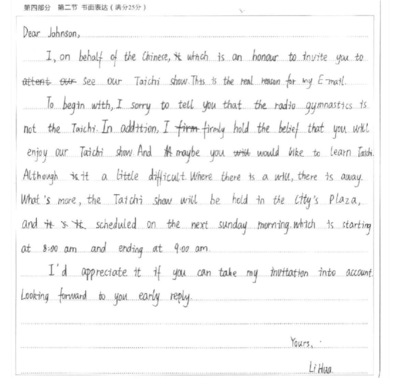 第四部分 第二节 书面表达(满分25分)
Dear Johnson,
I, on behalf of the Chinese, it which is an honour to invite you to
attent our see our Taichi show. This is the real reason for my E-mail.
To begin with, I sorry to tell you that the radio gymnastics is
not the Taichi. In addition, I firm firmly hold the belief that you will
enjoy our Taichi show. And maybe you will would like to learn Taichi.
Although is it a little difficult. Where there is a will, there is away.
What's more, the Taichi show will be held in the city's Plaza,
and it is it, scheduled on the next sunday morning. which is starting
at 8:00 am and ending at 9:00 am.
I'd appreciate it if you can take my invitation into account.
Looking forward to you early reply.
Yours,
Li Hua